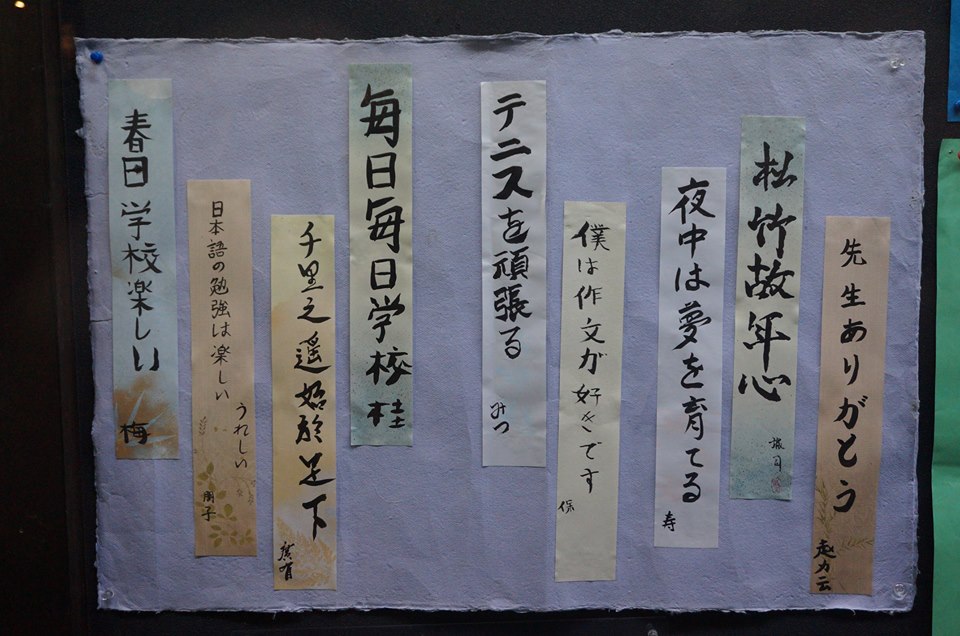 先生ありがとう
趙力云
松竹故年心
夜中は夢を育てる
寿
僕は作文が好きです
保
テニスを頑張る
みつ
毎日毎日学校
桂
千里之遥始於足下
日本語の勉強は楽しい
うれしい
春日学校楽しい
梅